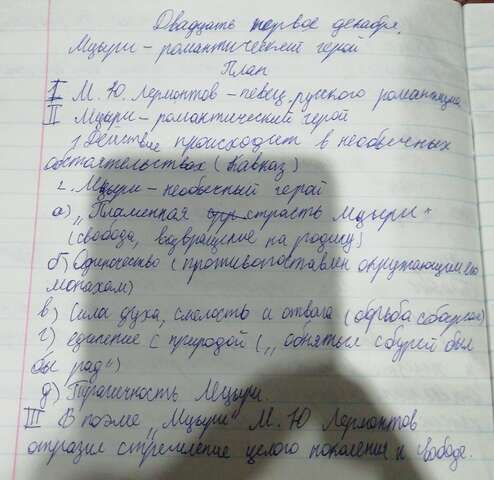 Двадцать первое декабря.
Мцыри – романтический герой
План
I М. Ю. Лермонтов – певец русского романтизма
II Мцыри – романтический герой
1. Действие происходит в необычных
обстоятельствах (Кавказ)
2. Мцыри – необычный герой
а) „Пламенная страсть Мцыри"
(свобода, возвращение на родину)
б) Одиночество (противопоставлен окружающим его
монахам)
в) Сила духа, смелость и отвага (борьба с барсом)
г) единение с природой („обняться с бурей был
бы рад")
д) Трагичность Мцыри.
III В поэме „Мцыри" М. Ю Лермонтов
отразил стремление целого поколения к свободе.